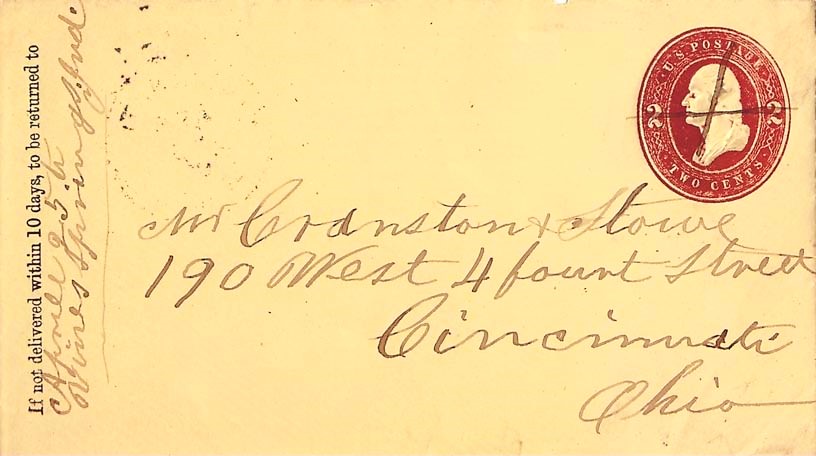 If not delivered within 10 days, to be returned to
Aprell 25.th
Vines Springs Ind.
U.S. POSTAGE
2 2
TWO CENTS
Mr Cranston & Stowe
190 West 4 fourt Street
Cincinnati
Ohio